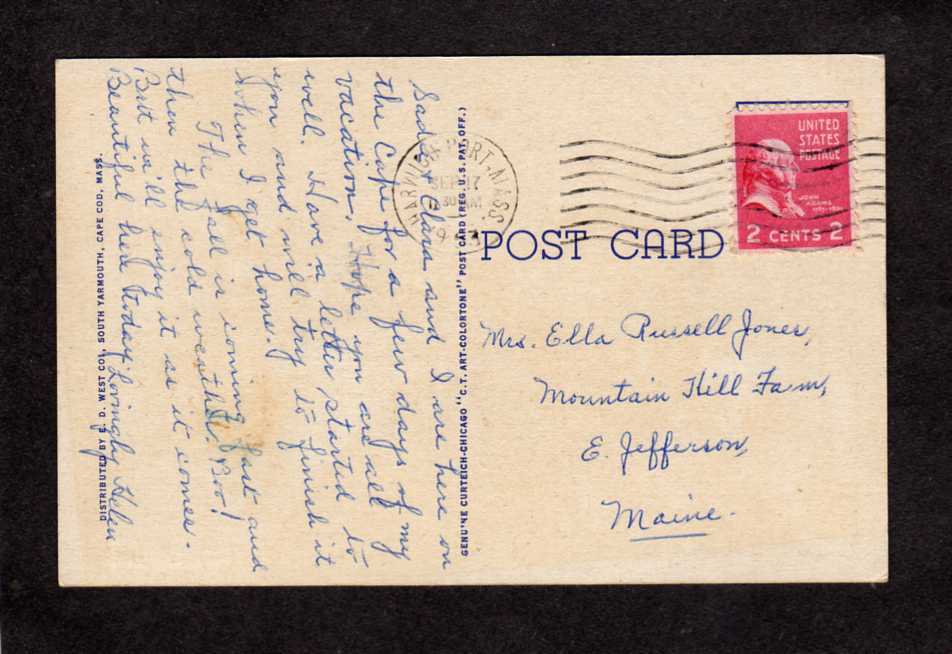 Sadie & Clara and I are here on
the Cape for a few days of my
vacation. Hope you are all
well. Have a letter started to
you and will try to finish it
when I get home.
The fall is coming fast and
then the cold weather. Boo!
But we'll enjoy it as it comes.
Beautiful here today. Lovingly Helen
DISTRIBUTED BY E. D. WEST CO., SOUTH YARMOUTH, CAPE COD, MASS.
GENUINE CURTEICH-CHICAGO "C.T. ART-COLORTONE" POST CARD (REG. U.S. PAT. OFF.)
HARWICH PORT, MASS.
SEP 17
30 M
POST CARD
UNITED
STATES
POSTAGE
JOHN
ADAMS
2 CENTS 2
Mrs. Ella Russell Jones,
Mountain Hill Farm,
E. Jefferson,
Maine.